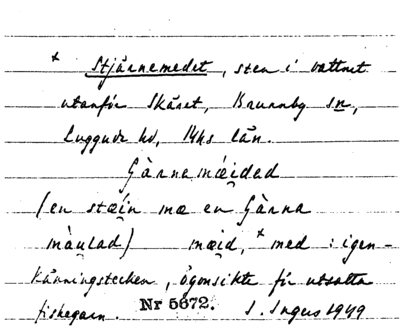 × Stjärnemedet, sten i vattnet
utanför Skäret, Brunnby sn,
Luggude hd, Mhs län.
Gàrnamæided
(en stæin mæ en Gàrna
màulad) mæid, × med : igen-
känningstecken, ögonsikte för utsatta
fiskegarn. Nr 5672. S. Ingers 1949